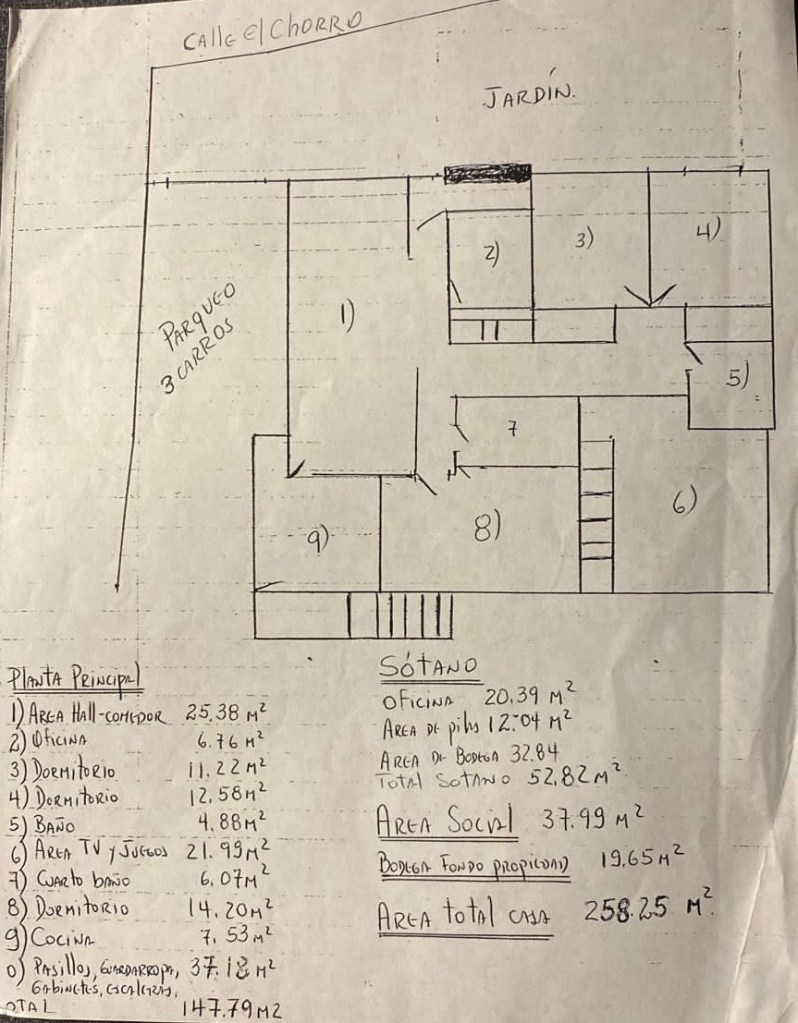 Calle El Chorro
Jardín.
Parqueo
3 Carros
1)
2)
3)
4)
5)
6)
7
8)
9)
Planta Principal
1) Area Hall-comedor 25.38 M²
2) Oficina 6.76 M²
3) Dormitorio 11.22 M²
4) Dormitorio 12.58 M²
5) Baño 4.88 M²
6) Area TV y Juegos 21.99 M²
7) Cuarto baño 6.07 M²
8) Dormitorio 14.20 M²
9) Cocina 7.53 M²
0) Pasillos, Guardarropa, 37.18 M²
Gabinetes, escaleras,
OTAL 147.79 M2
Sótano
Oficina 20.39 M²
Area de pilas 12.04 M²
Area de Bodega 32.84
Total Sotano 52.82 M²
Area Social 37.99 M²
Bodega Fondo propiedad 19.65 M²
Area total casa 258.25 M².